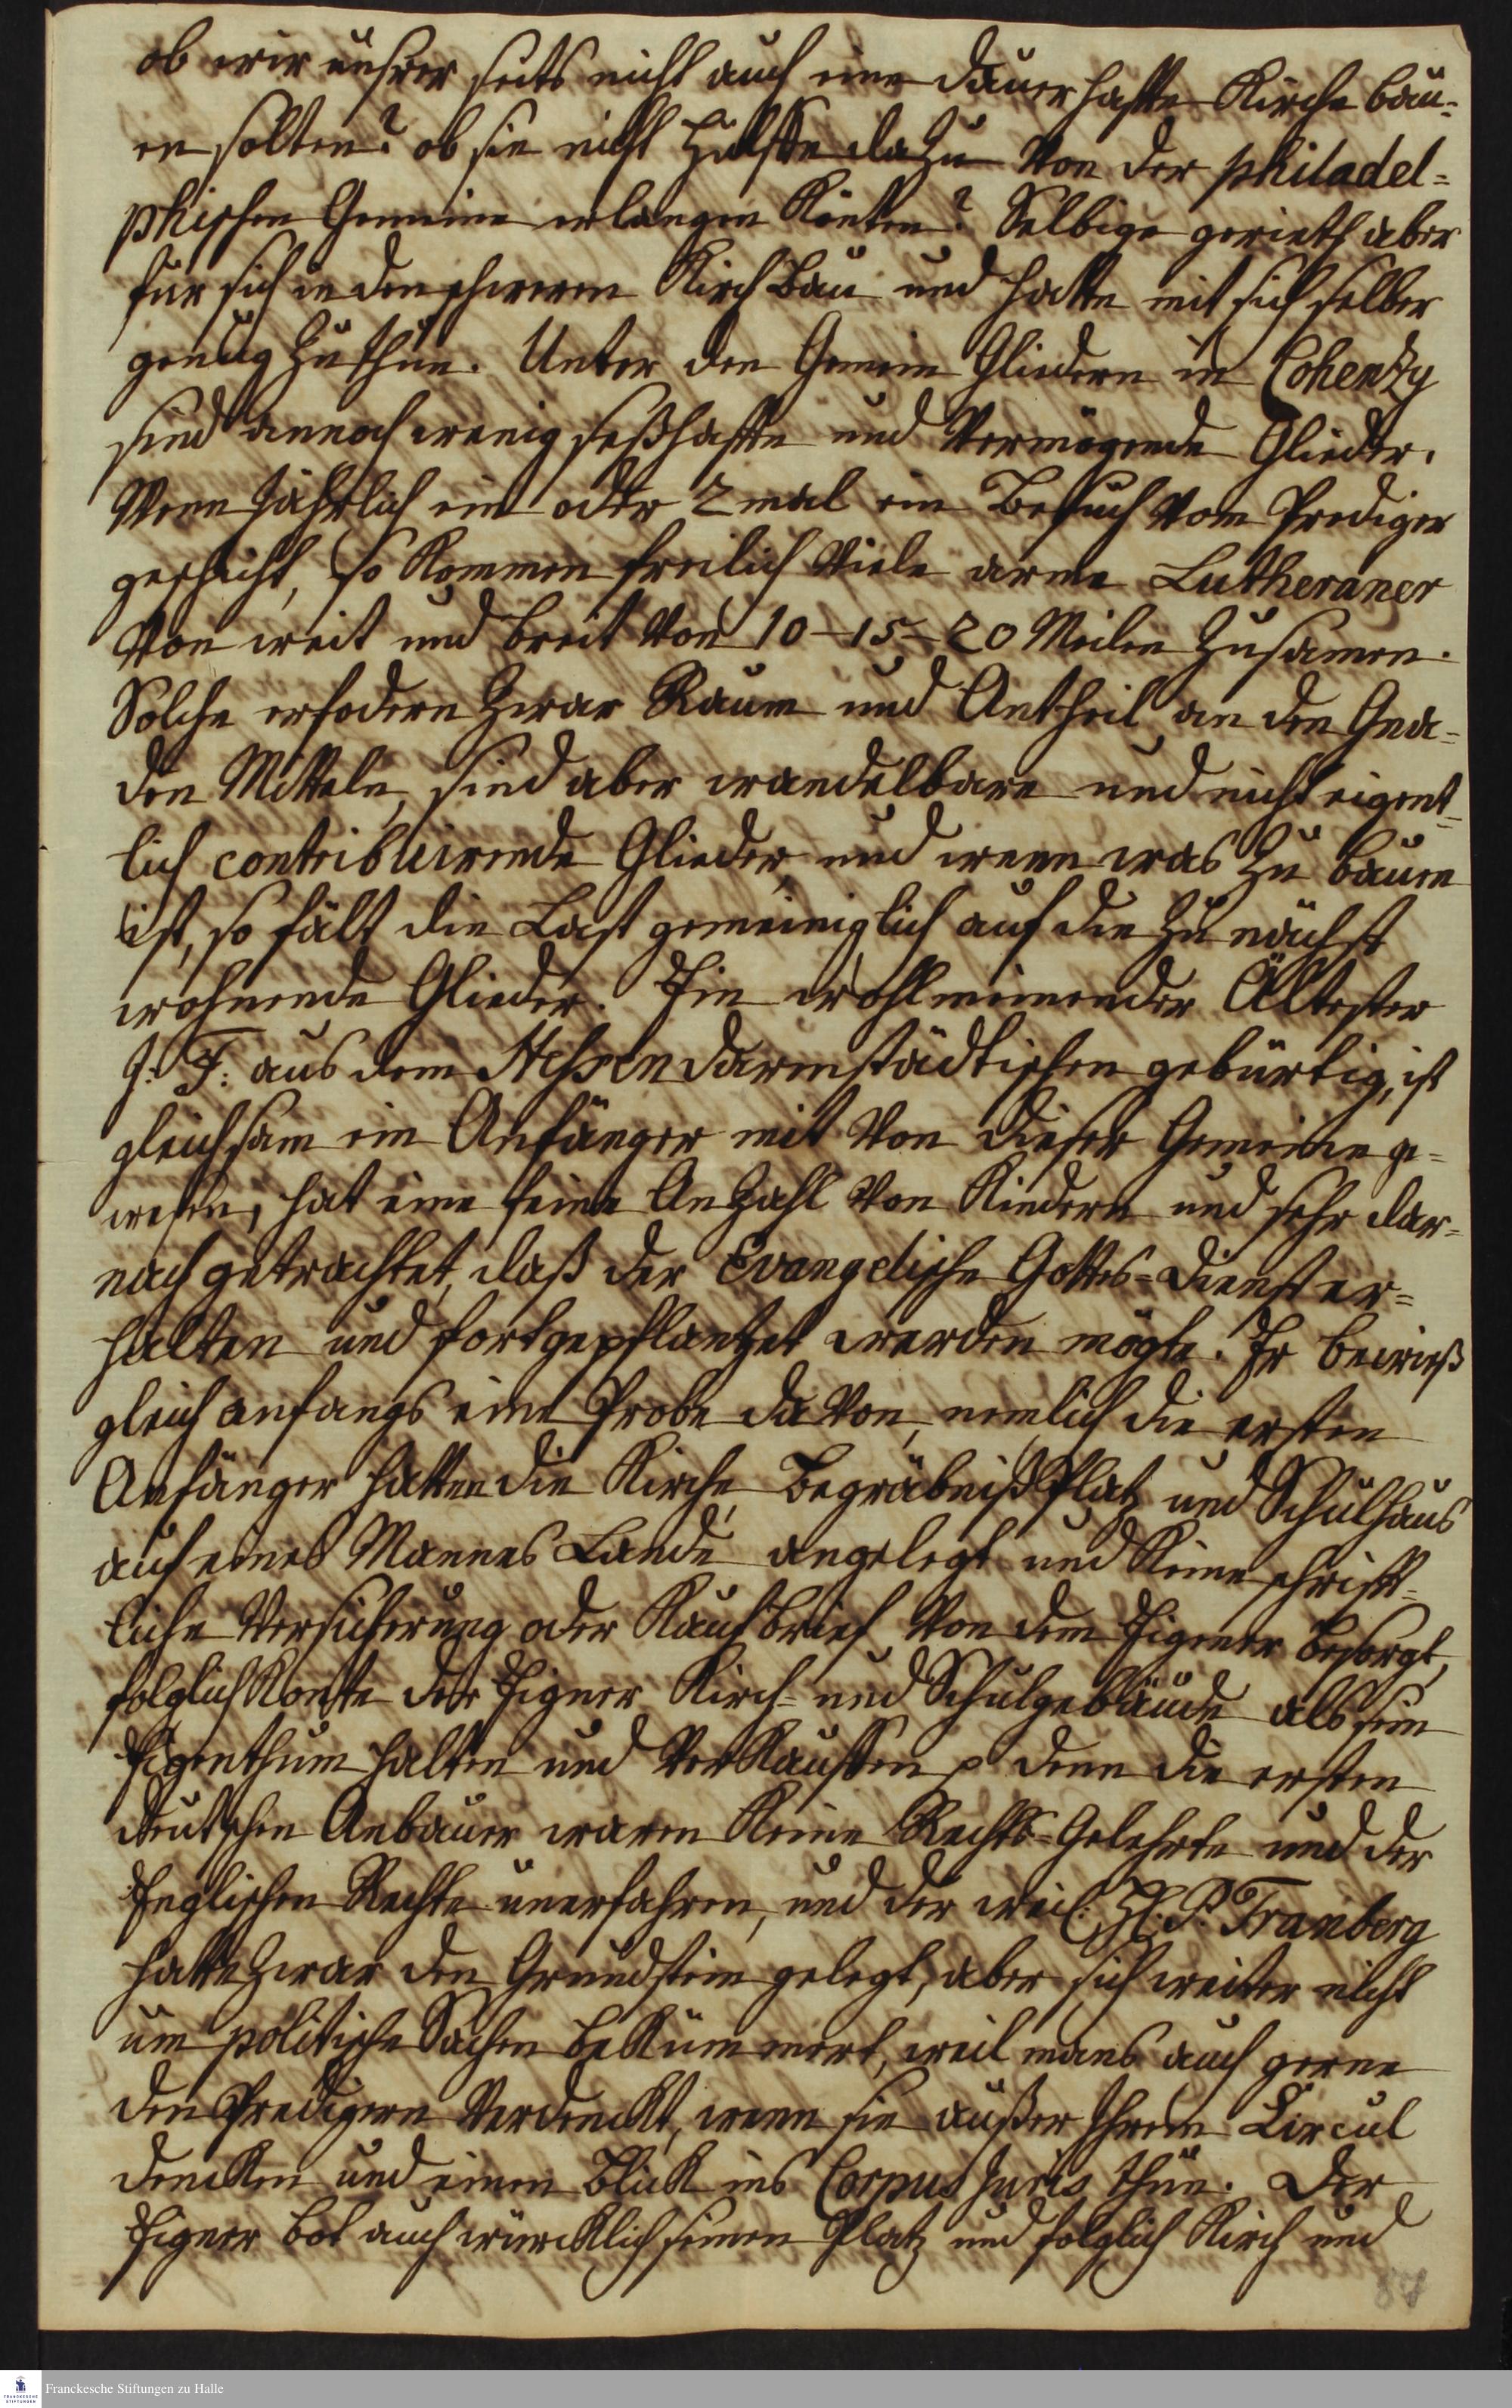 ob wir unsrer seits nicht auch eine dauerhafte Kirche bau-
en solten? ob sie nicht Hülffe dazu von der philadel=
phischen Gemeine erlangen könten? Selbige gerieth aber
für sich in den schweren Kirchbau und hatte mit sich selber
genug zu thun. Unter den Gemein Gliedern in Cohenzy
sind annoch wenig seßhaffte und vermögende Glieder.
Wenn jährlich ein oder 2 mal ein Besuch vom Prediger
geschicht, so kommen freilich viele arme Lutheraner
von weit und breit von 10-15-20 Meilen zusamen.
Solche erfodern zwar Raum und Antheil an den Gna=
den Mitteln, sind aber wandelbare und nicht eigent=
lich contribuirende Glieder, und wenn was zu bauen
ist, so fält die Last gemeiniglich auf die zu nächst
wohnende Glieder. Ein wohlmeinender Ältester
J: F: aus dem Hessen darmstädtischen gebürtig, ist
gleichsam ein Anfänger mit von dieser Gemeine ge=
wesen, hat eine feine Anzahl von Kindern und sehr dar=
nach getrachtet, daß der Evangelische Gottes=dienst er=
halten und fortgepflantzet werden mögte. Er bewieß
gleich anfangs eine Probe davon, nemlich die ersten
Anfänger hatten die Kirche, Begräbnißplatz und Schulhaus
auf eines Mannes Lande angelegt und keine schrifft-
liche Versicherung oder Kaufbrief von dem Eigener besorgt,
folglich konte der Eigner Kirch- und Schulgebäude als sein
Eigenthum halten und verkauffen denn die ersten
deutschen Anbauer waren keine Rechts=Gelehrte und der
Englischen Rechte unerfahren, und der weil: H: P. Tranberg
hatte zwar den Grundstein gelegt, aber sich weiter nicht
um politische Sachen bekümmert, weil mans auch gerne
den Predigern verdenckt, wenn sie außer Ihrem Circul
dencken und einen Blick ins Corpus Juris thun. Der
Eigner bot auch würcklich seinen Platz und folglich Kirch und
87
Franckesche Stiftungen zu Halle